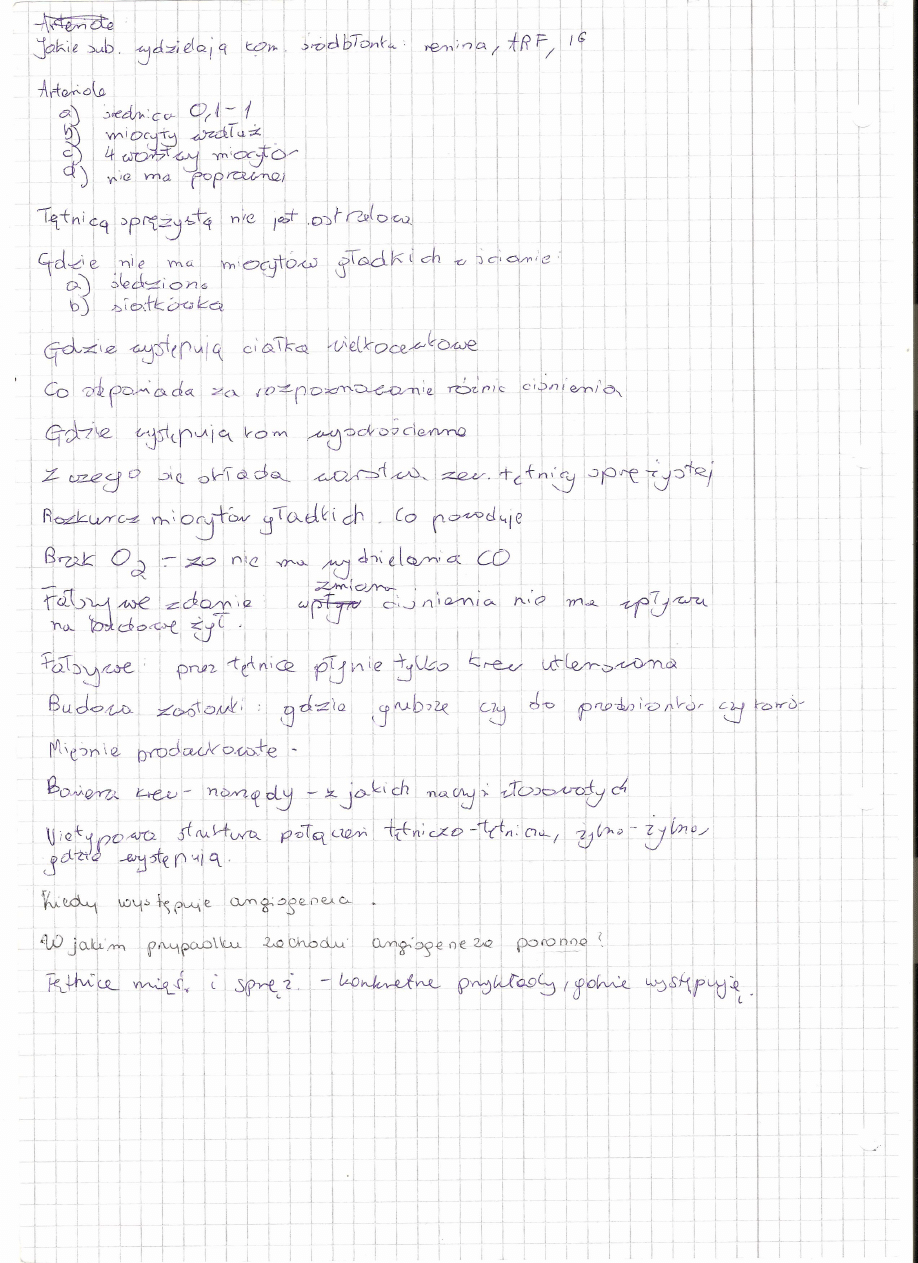 Arteriole
Jakie sub. wydzielają kom. śródbłonka: renina, tRF, 16
Arteriole
a) średnica 0,1-1
b) miocyty wzdłuż
c) 4 warstwy miocytów
d) nie ma poprawnej
Tętnicą sprężystą nie jest ostrzałowa
Gdzie nie ma miocytów gładkich w ścianie:
a) śledziona
b) siatkówka
Gdzie występują ciałka wielkocewkowe
Co odpowiada za rozpoznawanie różnic ciśnienia
Gdzie występują kom wysokościenne
Z czego się składa warstw. zew. tętnicy sprężystej
Rozkurcz miocytów gładkich. Co powoduje
Brak O2 - zo nie ma wydzielania CO
Fałszywe zdanie wpływ zmiana ciśnienia nie ma wpływu
na budowę żył.
Fałszywe: przez tętnice płynie tylko krew utlenowana
Budowa zastawki: gdzie grubsze czy do przedsionków czy komór
Mięśnie brodawkowate -
Bariera krew - narządy - z jakich naczyń włosowatych
Nietypowa struktura połączeń tętniczo-tętnicza, żylno-żylna,
gdzie występują.
Kiedy występuje angiogeneza.
W jakim przypadku zachodzi angiogeneza poronna?
Tętnice mięś. i spręż. - konkretne przykłady, gdzie występuję.